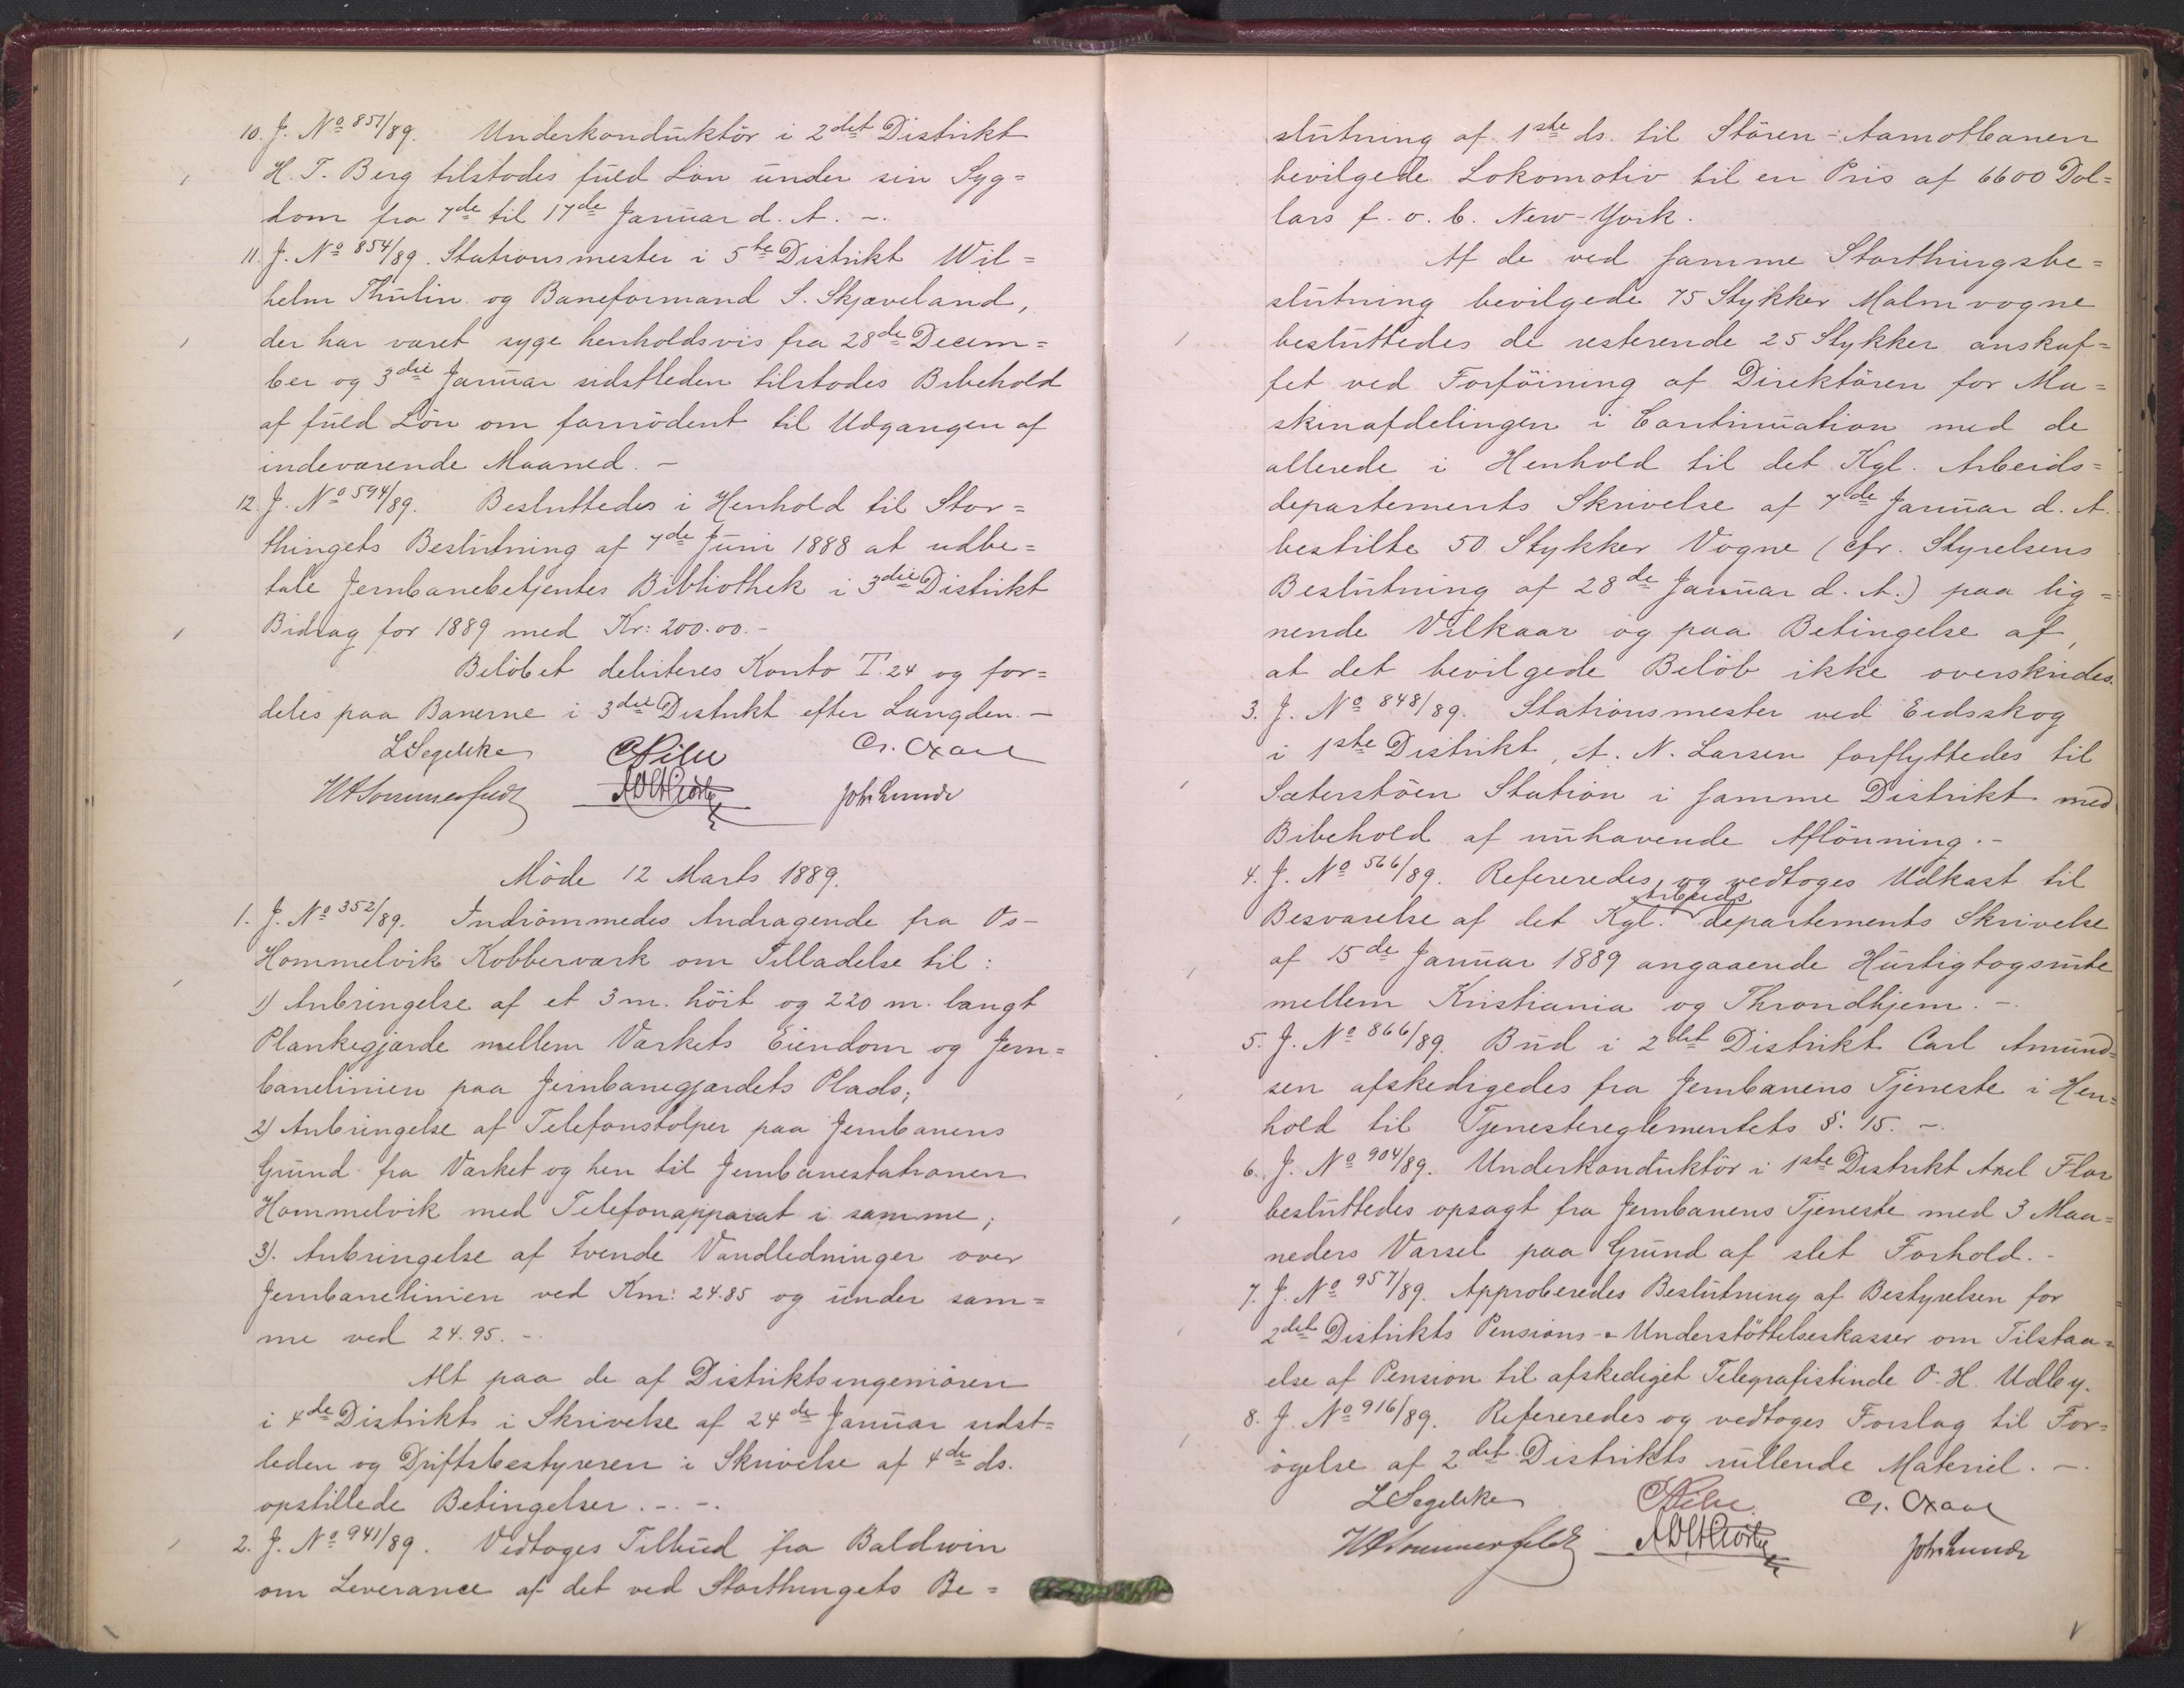 10. J. No 851/89. Underkonduktör i 2det Distrikt
H. T. Berg tilstodes fuld Lön under sin Syg=
dom fra 7de til 17de Januar d. A. -.
11. J. No 854/89. Stationsmester i 5te Distrikt Wil=
helm Thulin og Baneformand S. Skjæveland,
der har været syge henholdsvis fra 28de Decem=
ber og 3die Januar sidstleden tilstodes Bibehold
af fuld Lön om fornödent til Udgangen af
indeværende Maaned. -
12. J. No 594/89. Besluttedes i Henhold til Stor=
thingets Beslutning af 7de Juni 1888 at udbe=
tale Jernbanebetjentes Bibliothek i 3die Distrikt
Bidrag for 1889 med Kr: 200.00.-
Belöbet debiteres Konto I.24 og for=
deles paa Banerne i 3die Distrikt efter Længden. -
L Segelcke CPihl Cr. Oxaal
HASommerfeldt John Lunde
Möde 12 Marts 1889.
1. J. No 352/89. Indrömmedes Andragende fra Os-
Hommelvik Kobberværk om Tilladelse til:
1) Anbringelse af et 3 m. höit og 220 m. langt
Plankegjærde mellem Værkets Eiendom og Jern=
banelinien paa Jernbanegjærdets Plads;
2) Anbringelse af Telefonstolper paa Jernbanens
Grund fra Værket og hen til Jernbanestationen
Hommelvik med Telefonapparat i samme;
3). Anbringelse af tvende Vandledninger over
Jernbanelinien ved Km: 24.85 og under sam=
me ved 24.95. -.
Alt paa de af Distriktsingeniören
i 4de Distrikt i Skrivelse af 24de Januar sidst=
leden og Driftsbestyreren i Skrivelse af 4de ds.
opstillede Betingelser. -. -.
2. J. No 941/89. Vedtoges Tilbud fra Baldwin
om Leverance af det ved Storthingets Be=
slutning af 1ste ds. til Stören-Aamotbanen
bevilgede Lokomotiv til en Pris af 6600 Dol=
lars f. o. b. New-York.
Af de ved samme Storthingsbe=
slutning bevilgede 75 Stykker Malmvogne
besluttedes de resterende 25 Stykker anskaf=
fet ved Forföining af Direktören for Ma=
skinafdelingen i Continuation med de
allerede i Henhold til det Kgl. Arbeids=
departements Skrivelse af 7de Januar d. A.
bestilte 50 Stykker Vogne (cfr. Styrelsens
Beslutning af 28de Januar d. A.) paa lig=
nende Vilkaar og paa Betingelse af,
at det bevilgede Belöb ikke overskrides.
3. J. No 848/89. Stationsmester ved Eidsskog
i 1ste Distrikt, A. N. Larsen forflyttedes til
Sæterstöen Station i samme Distrikt med
Bibehold af nuhavende Aflönning. -
4. J. No 566/89. Refereredes og vedtoges Udkast til
Arbeids
Besvarelse af det Kgl. departements Skrivelse
af 15de Januar 1889 angaaende Hurtigtogsrute
mellem Kristiania og Throndhjem. -.
5. J. No 866/89. Bud i 2det Distrikt Carl Amund=
sen afskedigedes fra Jernbanens Tjeneste i Hen=
hold til Tjenestereglementets §. 15. -.
6. J. No 904/89. Underkonduktör i 1ste Distrikt Axel Flor
besluttedes opsagt fra Jernbanens Tjeneste med 3 Maa=
neders Varsel paa Grund af slet Forhold. -
7. J. No 957/89. Approberedes Beslutning af Bestyrelsen for
2det Distrikts Pensions- & Understöttelseskasser om Tilstaa=
else af Pension til afskediget Telegrafistinde O. H. Udby.
8. J. No 916/89. Refereredes og vedtoges Forslag til For=
ögelse af 2det Distrikts rullende Materiel. -.
L Segelcke CPihl Cr. Oxaal
HASommerfeldt John Lunde